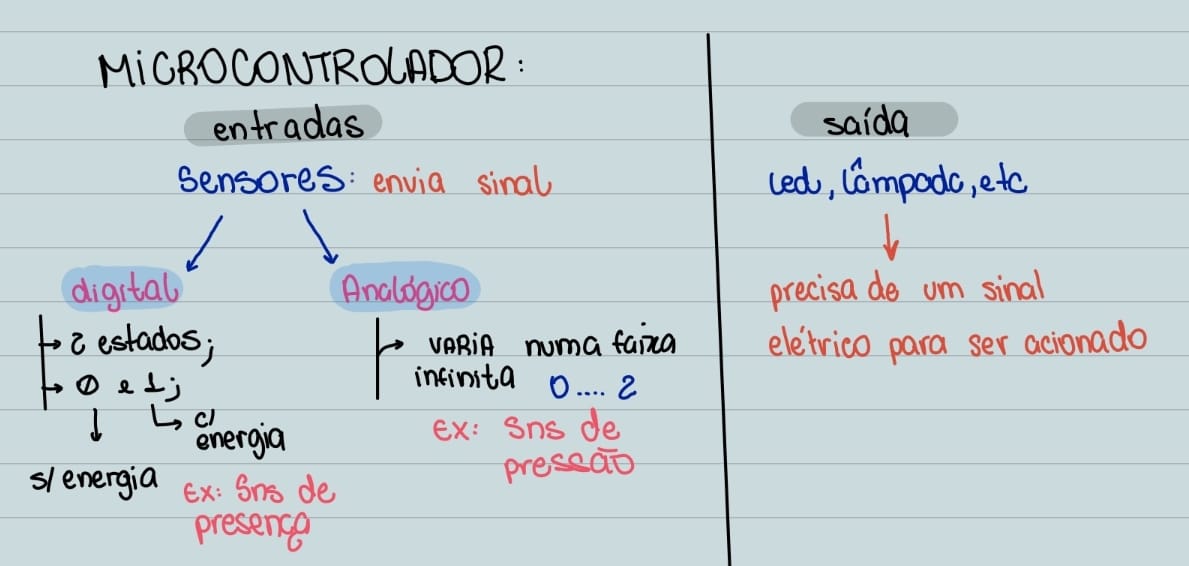 MICROCONTROLADOR:
entradas
Sensores: envia sinal
digital
→ 2 estados;
→ 0 e 1;
↳ c/
energia
s/ energia
Ex: Sns de
presença
Analógico
→ VARIA numa faixa
infinita 0.... 2
Ex: Sns de
pressão
saída
led, lâmpada, etc
precisa de um sinal
elétrico para ser acionado